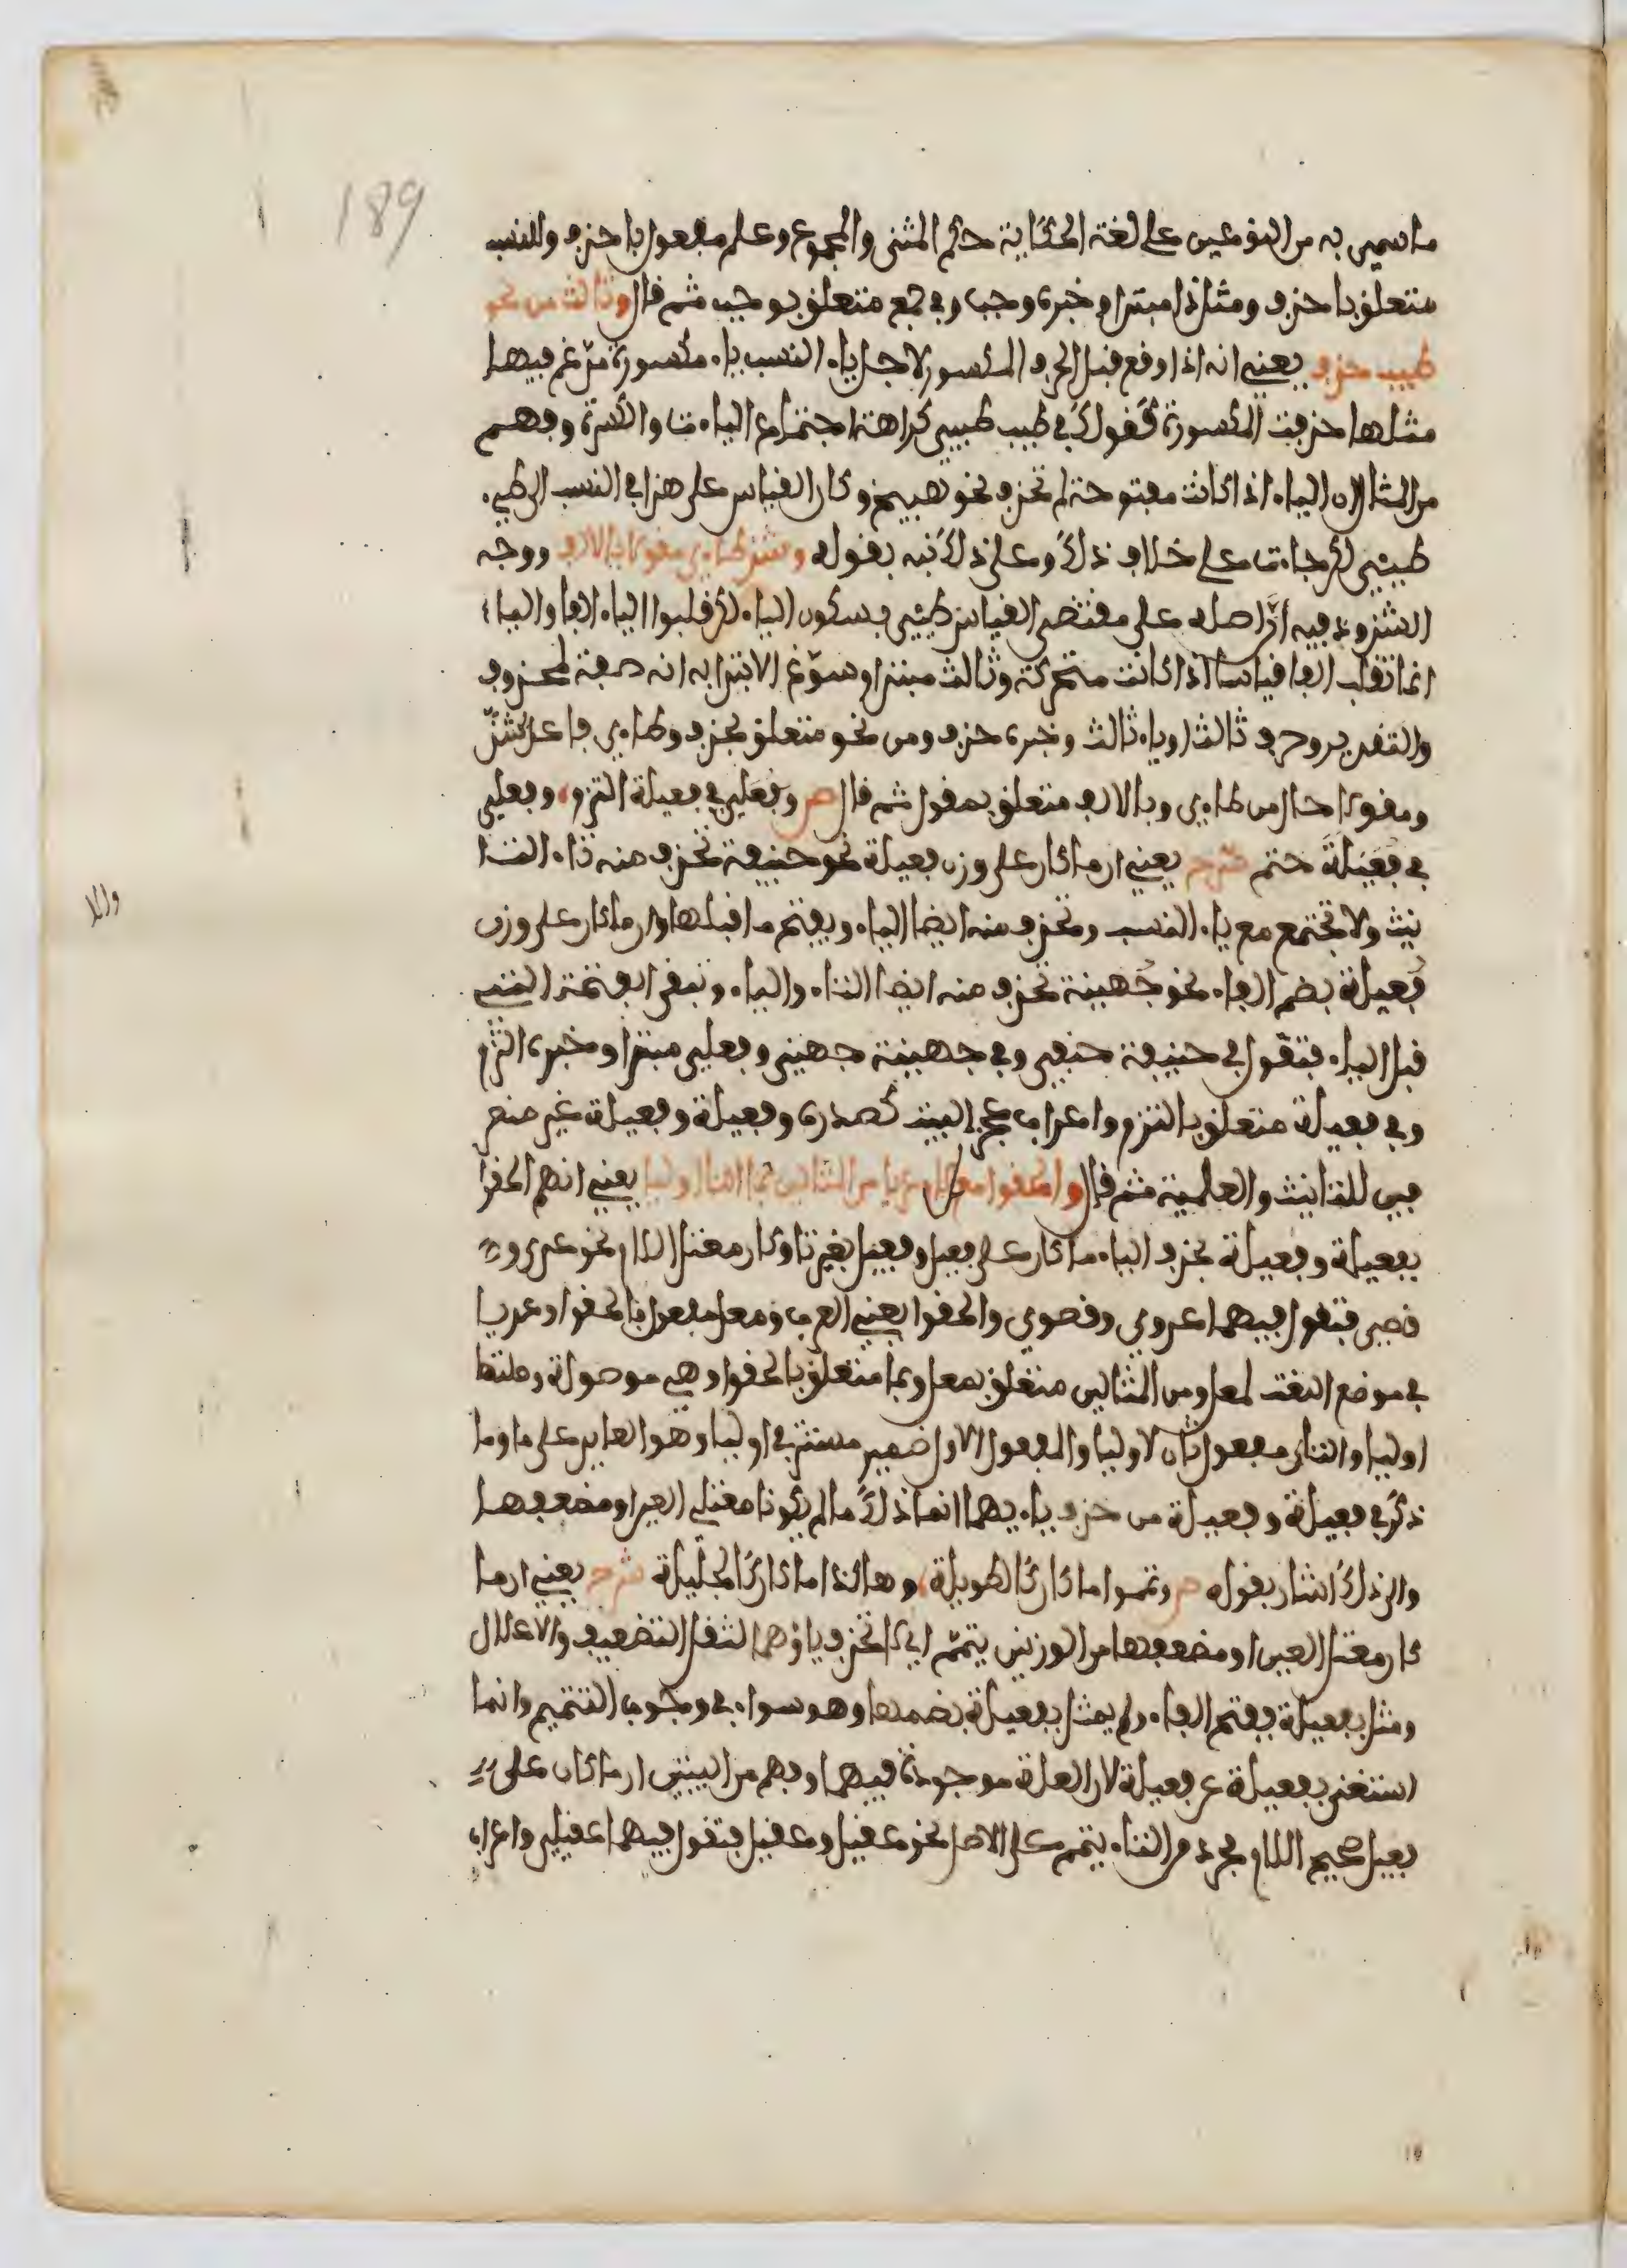 189
ما سمي به من النوعين على لغة الحكاية حكم المثنى والمجموع وعلم مفعول باحذف وللنسب
متعلق باحذف ومثل ذا مبتدا وخبره وجب وفي جمع متعلق بوجب ثم قال وثالث من نحو
طيب حذف يعني انه اذا وقع قبل الحرف المكسور لاجل ياء النسب ياء مكسورة مدغم فيها
مثلها حذفت المكسورة كقولك في طيب طيبي كراهة اجتماع الياءات والكسرة وفهم
من المثال ان الياء اذا كانت مفتوحة لم تحذف نحو هبيخ وكان القياس على هذا في النسب الى طيء
طيئي لكن جاءت على خلاف ذلك وعلى ذلك نبه بقوله وشذ طاءي مقولا بالالف ووجه
الشذوذ فيه ان اصله على مقتضى القياس طيئي بسكون الياء لكن قلبوا الياء الفا والياء
انما تقلب الفا قياسا اذا كانت متحركة وثالث مبتدا وسوغ الابتدا به انه صفة لمحذوف
والتقدير وحرف ثالث او ياء ثالث وخبره حذف ومن نحو متعلق بحذف وطاءي فاعل بشذ
ومقولا حال من طاءي وبالالف متعلق بمقول ثم قال ص وفعلي في فعيلة التزم، وفعلي
في فعيلة حتم شرح يعني ان ما كان على وزن فعيلة نحو حنيفة تحذف منه تاء التا
نيث ولا تجتمع مع ياء النسب وتحذف منه ايضا الياء ويفتح ما قبلها وان ما كان على وزن
فعيلة بضم الفاء نحو جهينة تحذف منه ايضا التاء والياء وتبقى الفتحة التي
قبل الياء فتقول في حنيفة حنفي وفي جهينة جهني وفعلي مبتدا وخبره التزم
وفي فعيلة متعلق بالتزم واعراب عجز البيت كصدره وفعيلة وفعيلة غير منصر
فين للتانيث والعلمية ثم قال والحقوا معل لام عريا من المثالين بما التا اوليا يعني انهم الحقوا
بفعيلة وفعيلة بحذف الياء ما كان على فعيل وفعيل بغير تا وكان معتل اللام نحو عدي و
قصي فتقول فيهما عدوي وقصوي والحقوا يعني العرب ومعل مفعول بالحقوا وعريا
في موضع النعت لمعل ومن المثالين متعلق بمعل وبما متعلق بالحقوا وهي موصولة وصلتها
اوليا والتاء مفعول ثان لاوليا والمفعول الاول ضمير مستتر في اوليا وهو العايد على ما وما
ذكر في فعيلة وفعيلة من حذف ياءيهما انما ذلك ما لم يكونا معتلي العين او مضعفها
والى ذلك اشار بقوله ص وتمموا ما كان كالطويلة، وهاكذا ما كان كالجليلة شرح يعني ان ما
كان معتل العين او مضعفها من الوزنين يتمم اي لا تحذف ياؤهما لثقل التضعيف والاعلال
ومثل بفعيلة بفتح الفاء ولم يمثل بفعيلة بضمها وهو سواء في وجوب التتميم وانما
استغنى بفعيلة عن فعيلة لان العلة موجودة فيهما وفهم من البيتين ان ما كان على
فعيل صحيح اللام مجردا من التاء يتمم على الاصل نحو عقيل وعقيل فتقول فيهما عقيلي واعراب